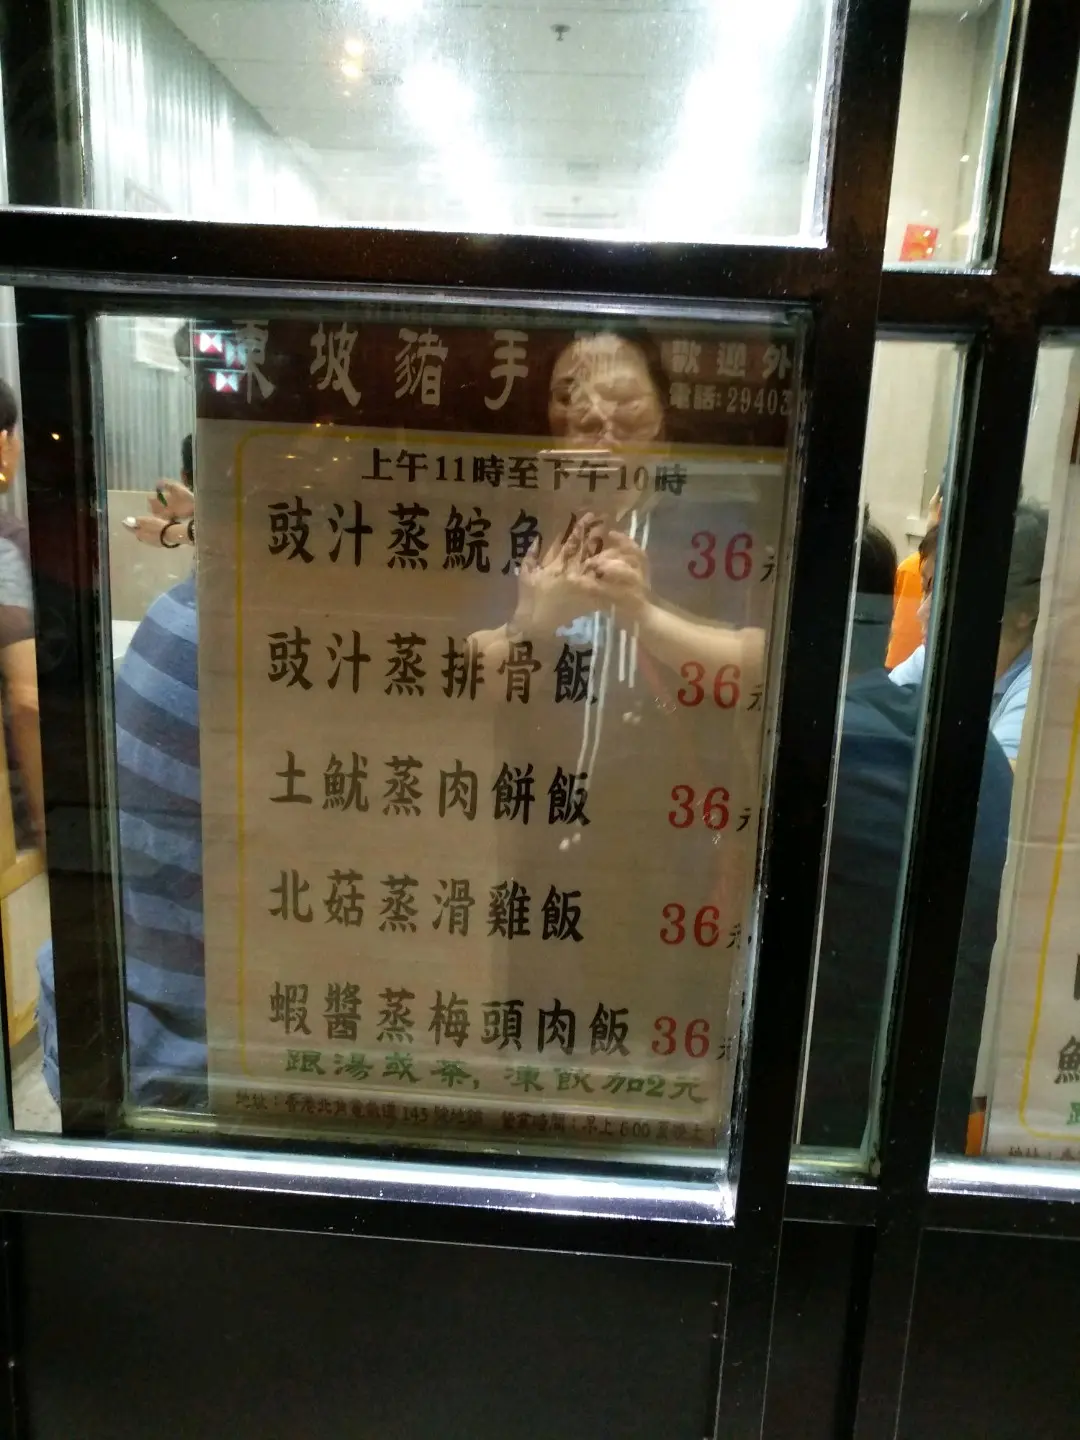 東坡豬手
歡迎外
電話:29403
上午11時至下午10時
豉汁蒸鯇魚飯 36元
豉汁蒸排骨飯 36元
土魷蒸肉餅飯 36元
北菇蒸滑雞飯 36元
蝦醬蒸梅頭肉飯 36元
跟湯或茶,凍飲加2元
地址:香港北角電氣道145號地舖 營業時間:早上6:00至晚上1